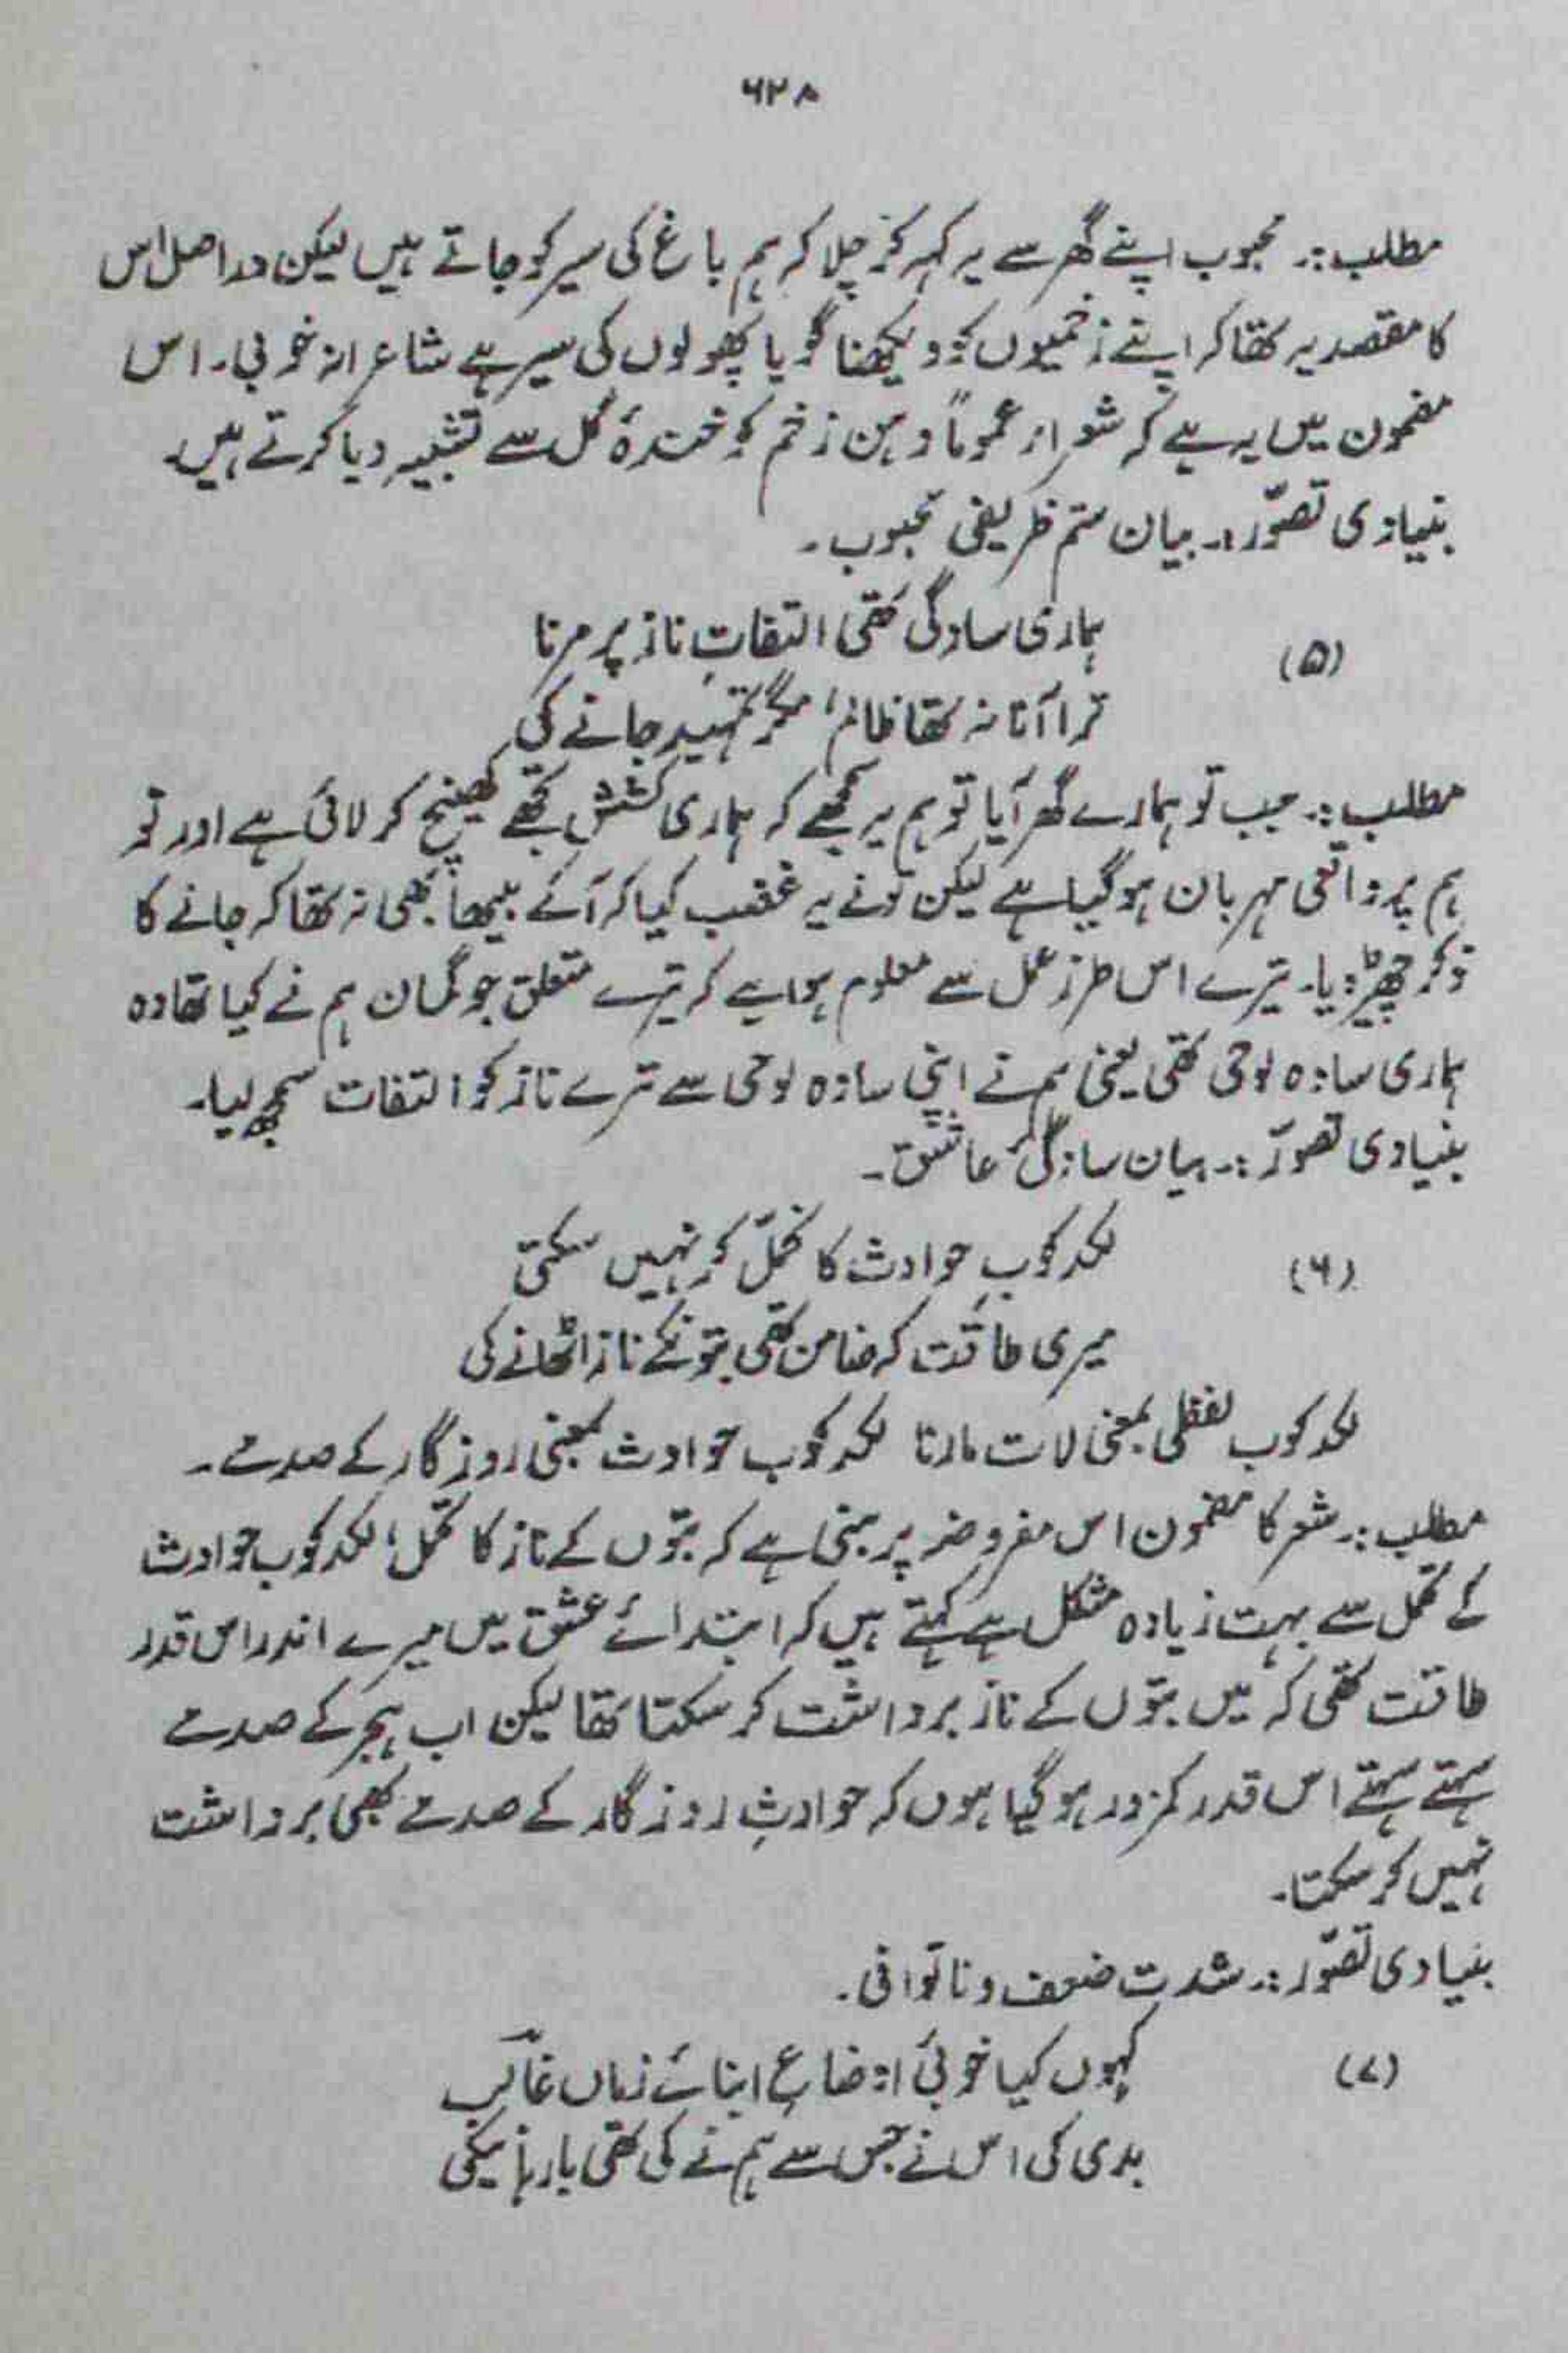 ۶۲۸
مطلب:۔ محبوب اپنے گھر سے یہ کہہ کر چلا کہ ہم باغ کی سیر کو جاتے ہیں لیکن دراصل اس
کا مقصد یہ تھا کہ اپنے زخمیوں کو دیکھنا گویا پھولوں کی سیر ہے شاعرانہ خوبی۔ اس
مضمون میں یہ ہے کہ شعراء عموماً دہن زخم کو خندۂ گل سے تشبیہ دیا کرتے ہیں۔
بنیادی تصوّر:۔ بیان ستم ظریفی محبوب۔
(۵) ہماری سادگی تھی التفاتِ ناز پر مرنا
ترا آنا نہ تھا ظالم، مگر تمہید جانے کی
مطلب:۔ جب تو ہمارے گھر آیا تو ہم یہ سمجھے کہ ہماری کشش تجھے کھینچ کر لائی ہے اور تو
ہم پر واقعی مہربان ہو گیا ہے لیکن تو نے یہ غضب کیا کہ آ کے بیٹھا بھی نہ تھا کہ جانے کا
ذکر چھیڑ دیا۔ تیرے اس طرز عمل سے معلوم ہوا ہے کہ تیرے متعلق جو گمان ہم نے کیا تھا وہ
ہماری سادہ لوحی تھی یعنی ہم نے اپنی سادہ لوحی سے ترے ناز کو التفات سمجھ لیا۔
بنیادی تصوّر:۔ بیان سادگیٔ عاشق۔
(۶) لکد کوبِ حوادث کا تحمّل کر نہیں سکتی
میری طاقت کہ ضامن تھی بتونکے ناز اٹھانے کی
لکد کوب لفظی بمعنی لات مارنا لکد کوب حوادث بمعنی روزگار کے صدمے۔
مطلب:۔ شعر کا مضمون اس مفروضہ پر مبنی ہے کہ بتّوں کے ناز کا تحمل، لکد کوب حوادث
کے تحمل سے بہت زیادہ مشکل ہے کہتے ہیں کہ ابتدائے عشق میں میرے اندر اس قدر
طاقت تھی کہ میں بتّوں کے ناز برداشت کر سکتا تھا لیکن اب ہجر کے صدمے
سہتے سہتے اس قدر کمزور ہو گیا ہوں کہ حوادثِ روزگار کے صدمے بھی برداشت
نہیں کر سکتا۔
بنیادی تصوّر:۔ شدتِ ضعف و ناتوانی۔
(۷) کہوں کیا خوبیٔ اوضاعِ ابنائے زماں غالبؔ
بدی کی اس نے جس سے ہم نے کی تھی بارہا نیکی